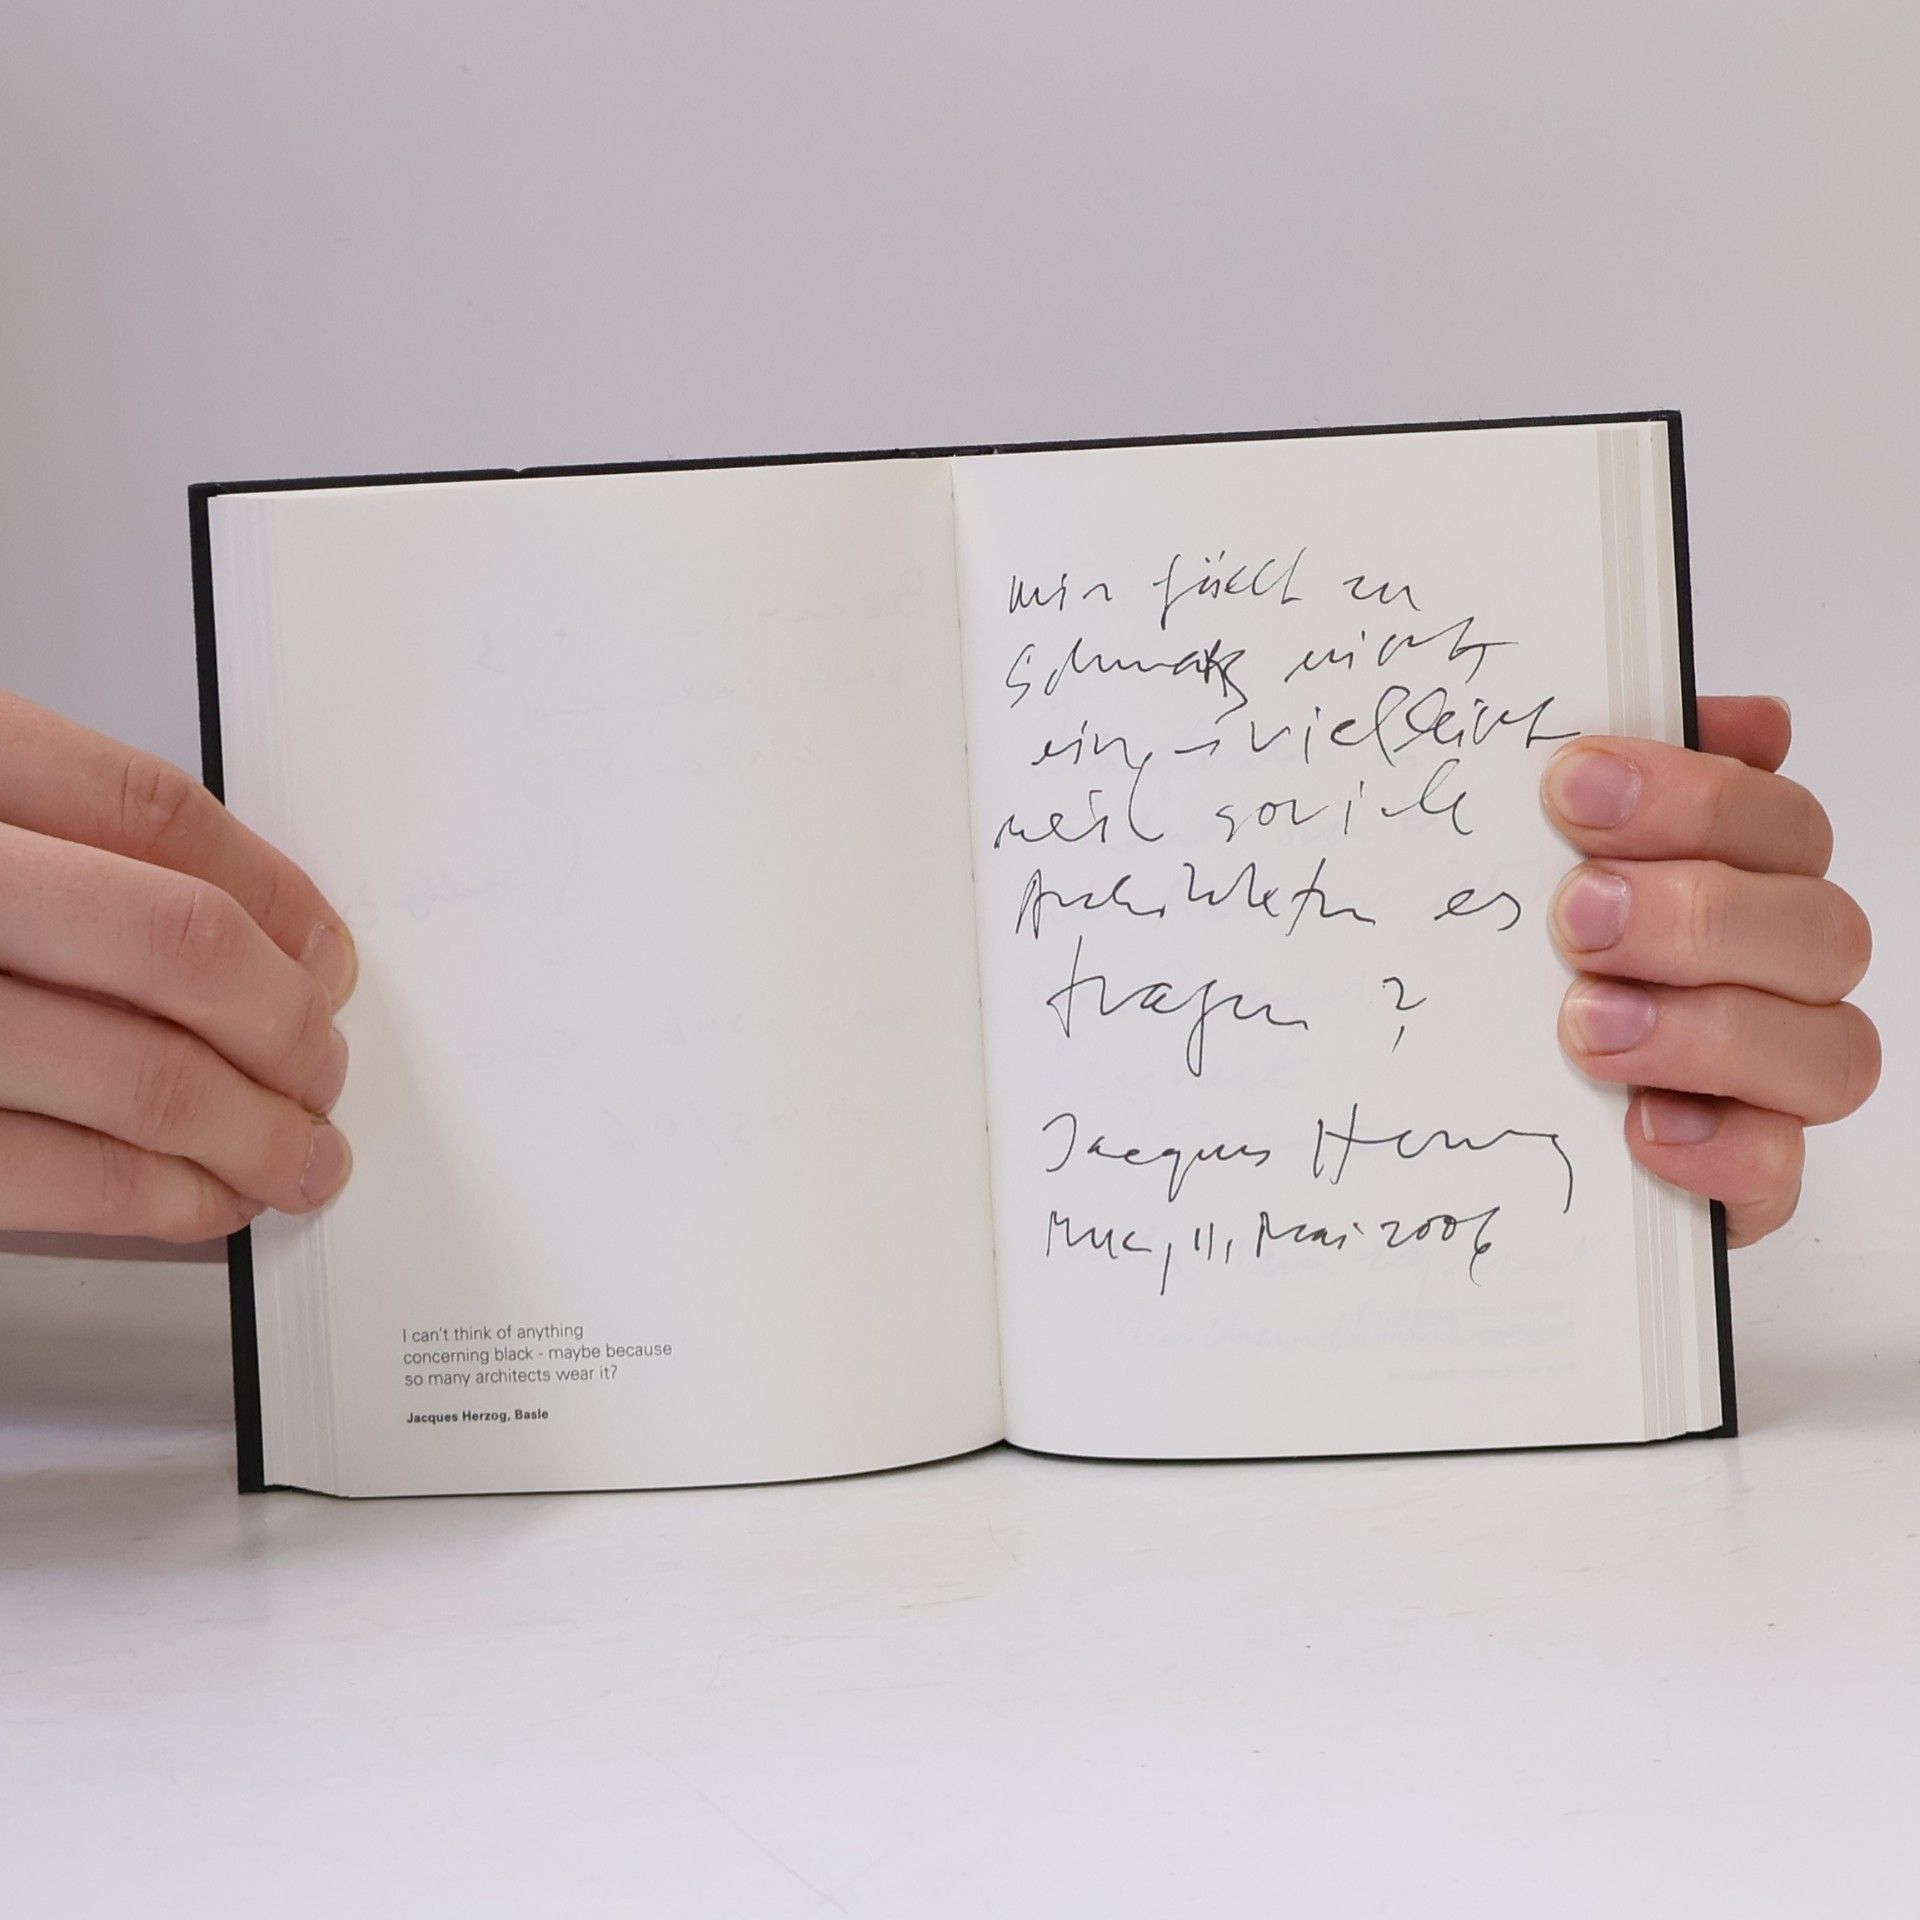 I can't think of anything
concerning black - maybe because
so many architects wear it?
Jacques Herzog, Basle
mir fällt zu
Schwarz nicht
ein, - vielleicht
weil soviele
Architekten es
tragen ?
Jacques Herzog
Muc, 11, Mai 2006